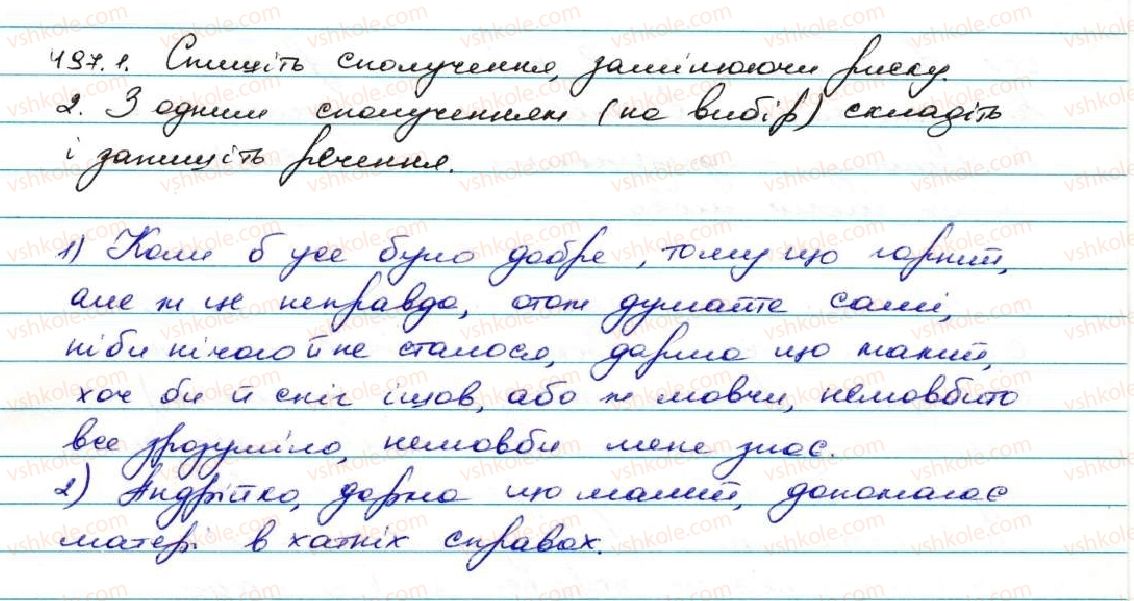 497.1. Спишіть сполучення, замінюючи риску.
2. З одним сполученням (на вибір) складіть
і запишіть речення.
1) Коли б усе було добре, тому що гарний,
але ж це неправда, отож думайте самі,
ніби нічого й не сталося, дарма що малий,
хоч би й сніг ішов, або ж мовчи, немовбито
все зрозуміло, немовби мене знає.
2) Андрійко, дарма що малий, допомагає
матері в хатніх справах.